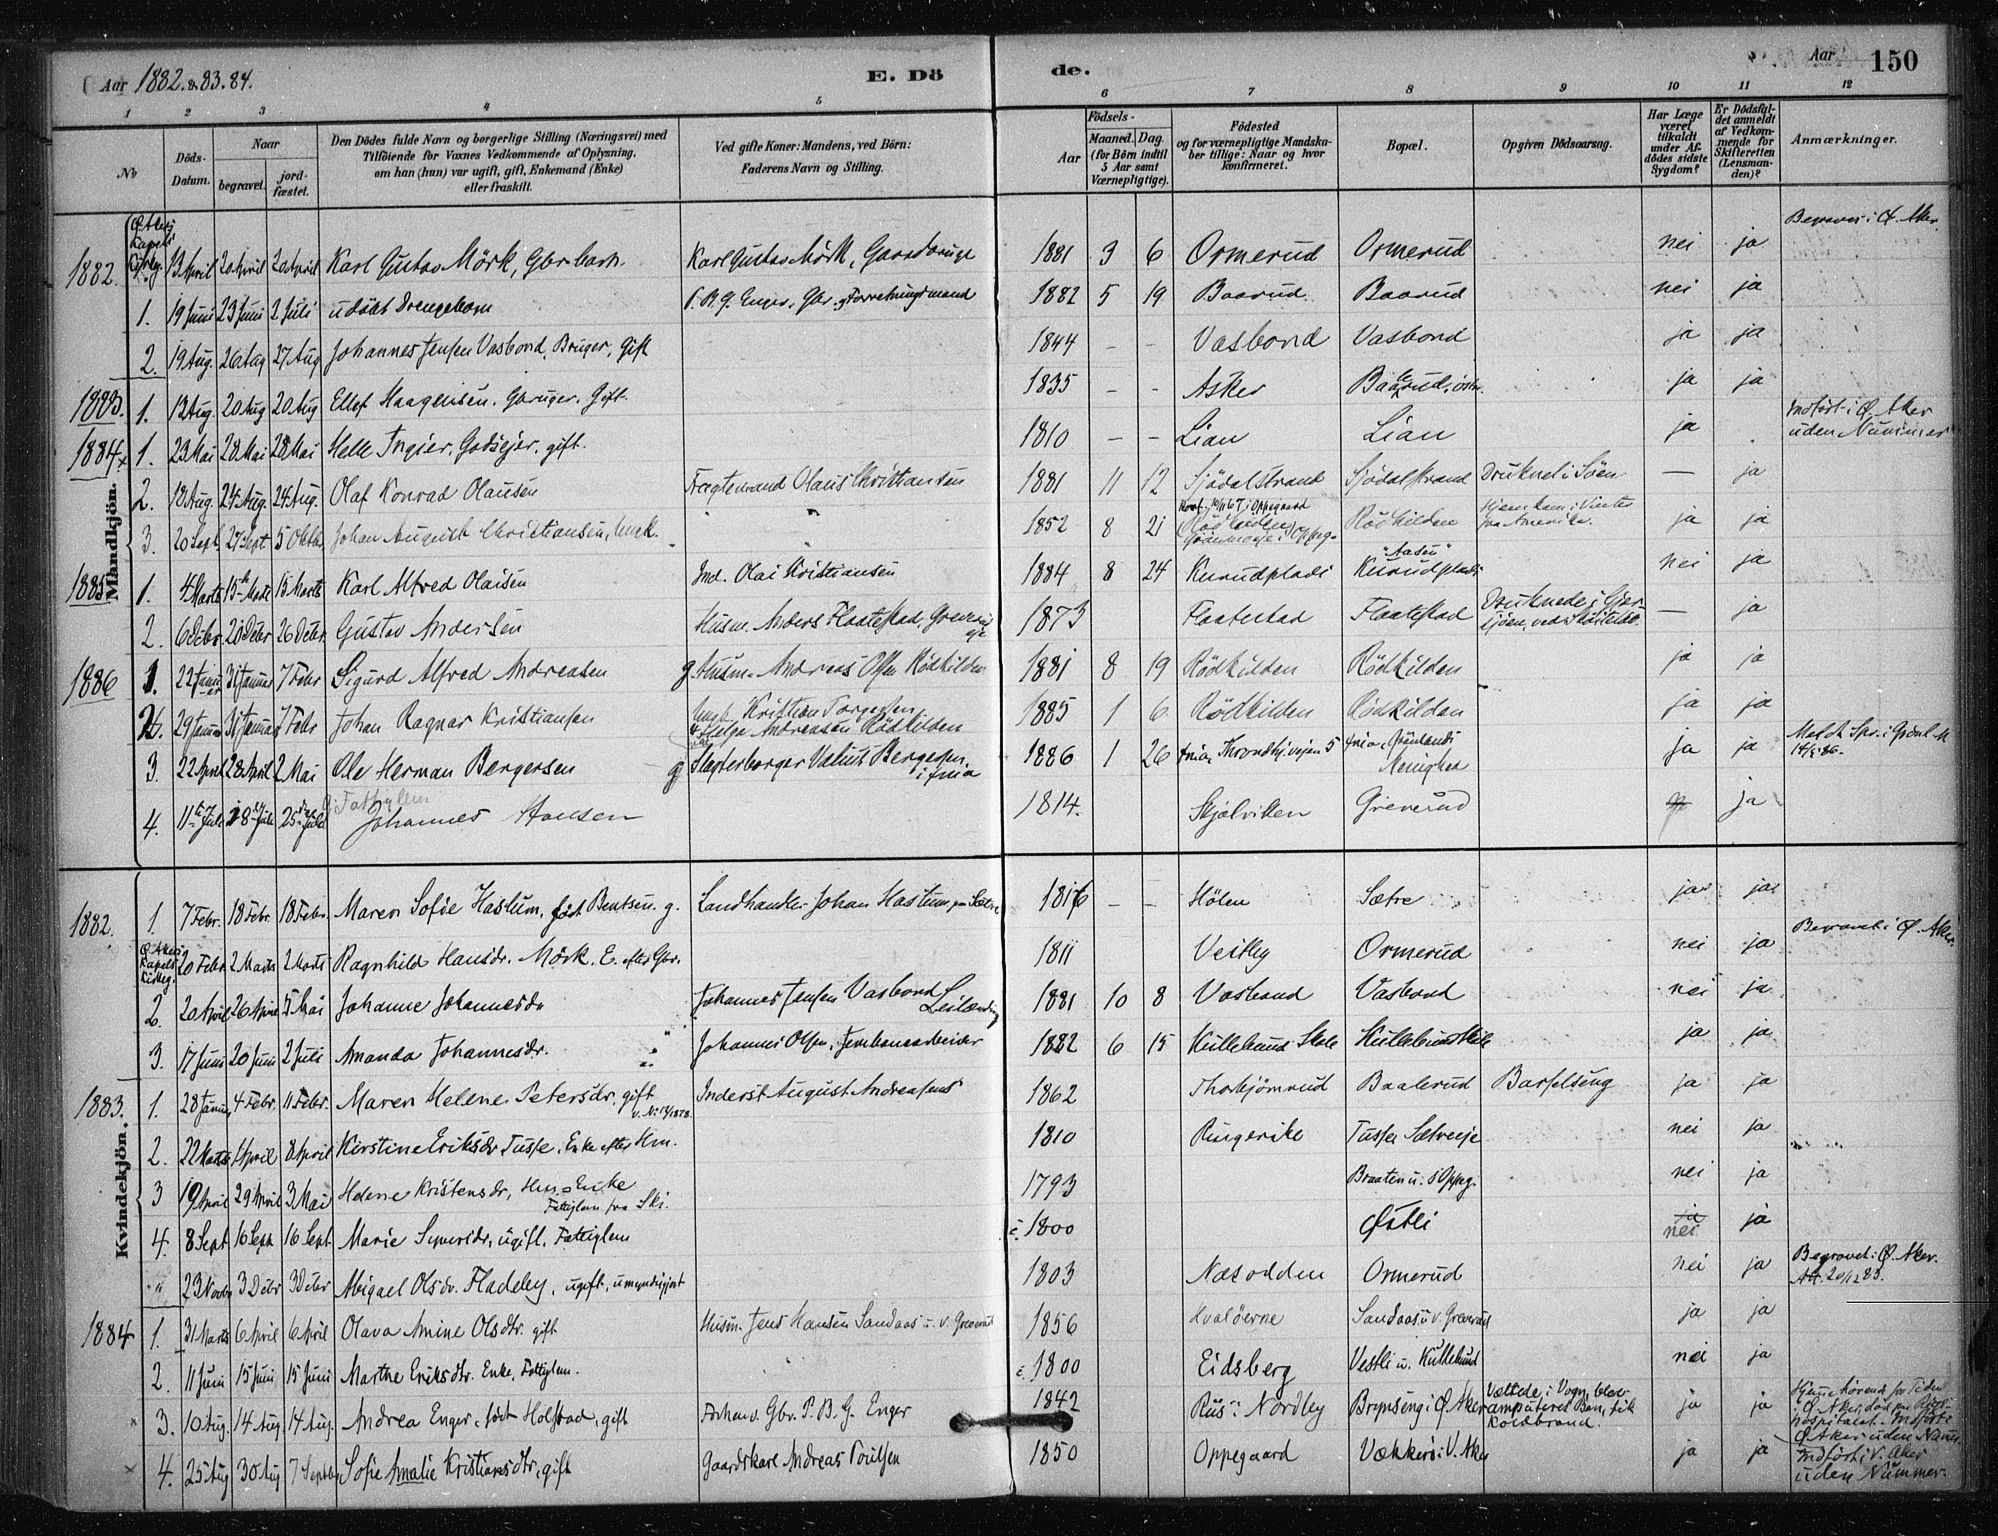 Aar 1882. & 83. 84.
E. Dö
de.
Aar
150
1 2 3 4 5 6 7 8 9 10 11 12
No
Döds-Datum.
Naar
begravet.
jord-fæstet.
Den Dödes fulde Navn og borgerlige Stilling (Næringsvei) med
Tilföiende for Voxnes Vedkommende af Oplysning,
om han (hun) var ugift, gift, Enkemand (Enke)
eller fraskilt.
Ved gifte Koner: Mandens, ved Börn:
Faderens Navn og Stilling.
Födsels-
Aar
Maaned. Dag.
(for Börn indtil
5 Aar samt
Værnepligtige).
Födested
og for værnepligtige Mandska-
ber tillige: Naar og hvor
konfirmeret.
Bopæl.
Opgiven Dödsaarsag.
Har Læge
været
tilkaldt
under Af-
dödes sidste
Sygdom?
Er Dödsfal-
det anmeldt
af Vedkom-
mende for
Skifteretten
(Lensman-
den)?
Anmærkninger.
Mandkjön.
1882. Ø. Akers Kapels Kirkeg. 13 April 20 April 20 April Karl Gustav Mörk, Gbr barn Karl Gustav Mörk, Gaardbruger 1881 3 6 Ormerud Ormerud nei ja Begravet i Ø. Aker.
1. 19 Juni 23 Juni 2 Juli udöbt Drengebarn P. B. G. Enger, Gbr. og Forretningsmand 1882 5 19 Baarud Baarud nei ja
2. 19 Aug. 26 Aug 27 Aug Johannes Jensen Vasbond, Bruger, Gift 1844 – – Vasbond Vasbond ja ja
1883. 1. 13 Aug. 20 Aug 20 Aug Ellef Haagensen. Gbruger. Gift. 1835 – – Asker Baalerud, östre. ja ja
1884 x 1. 23 Mai 28 Mai 28 Mai Helle Ingier, Godsejer, gift. 1810 – – Lian Lian ja Indfört i Ø. Aker
uden Nummer
2. 18 Aug. 24 Aug. 24 Aug. Olaf Konrad Olausen Fragtemand Olaus Christiansen 1881 11 12 Sjödalstrand Sjödalstrand Druknet i Søen — ja
3. 20 Sept. 27 Sept 5 Oktbr Johan August Christiansen, Ungk. 1852 8 21 Konf. 10/11 67 i Oppegaard Rödkilden ja ja
1885 1. 4 Marts 15 Marts 15 Marts Karl Alfred Olaisen Ind. Olai Kristiansen 1884 8 24 Kurudplads "Aasen" Kurudplads nei ja
2. 6 Debr. 20 Debr 26 Debr. Gustav Andersen Husm. Anders Flaatestad, Greverud
eje 1873 Flaatestad Flaatestad Druknede i Gjer-
sjöen — ja
1886 1. 22 Januar 31 Januar 7 Febr Sigurd Alfred Andreasen g Husm. Andreas Olsen Rödkilden 1881 8 19 Rödkilden Rödkilden ja ja
2. 29 Januar 31 Januar 7 Febr Johan Ragnar Kristiansen Ungk. Kristian Torgersen
& Helga Andreasen Rödkilden 1885 1 6 Rödkilden Rödkilden ja ja
3. 22 April 28 April 2 Mai Ole Herman Bergersen g Slagterborger Valius Bergersen
i Xnia 1886 1 26 Xnia, Throndhj. vejen 5 Xnia, Grönlands
Menighed ja ja Meldt Spr. i Grönl. M
14/5 86.
4. 11te Juli 18 Juli 25 Juli Fattiglem
Johannes Hansen 1814. Skjelviken Greverud ja
Kvindekjön.
1882. 1. 7 Febr. 18 Febr. 18 Febr. Maren Sofie Haslum, född Bentsen. g. Landhandler Johan Haslum, paa Sætre 1816 – – Hölen Sætre ja ja
Ø. Akers Kapels Kirkeg. 20 Febr 2 Marts 2 Marts Ragnhild Hansdr. Mörk. E. efter Gbr. 1811 Vestby Ormerud nei ja Begravet i Ø. Aker.
2. 20 April 26 April 5 Mai Johanne Johannesdr Johannes Jensen Vasbond
Leilænding 1881 10 8 Vasbond Vasbond nei ja
3. 17 Juni 20 Juni 2 Juli Amanda Johannesdr. Johannes Olsen, Jernbanearbeider 1882 6 15 Kullebund Skole Kullebund Skole ja ja
1883. 1. 28 Januar 4 Febr. 11 Febr. Maren Helene Petersdr, gift
v. No 12/1878. Inderst August Andreasens 1862 Thorbjörnrud Baalerud Barselseng ja ja
2. 22 Marts 1 April 8 April Kirstine Eriksdr Tusse, Enke efter Hm. 1810 Ringerike Tusse, Sætreeje nei ja
3 19 April 29 April 3 Mai Helene Kristensdr, Hm. Enke
Fattiglem fra Ski. 1793 Braaten u. S Oppeg. nei ja
4. 8 Sept 16 Sept 16 Sept. Marie Syversdr, ugift, Fattiglem c. 1800 Østli nei ja
" 23 Novbr 3 Debr 3 Debr Abigael Olsdr. Fladeby, ugift, umyndiggjort 1803 Næsodden Ormerud nei ja Begravet i Ø. Aker.
Att. 20/12 83.
1884 1. 31 Marts 6 April 6 April Olava Amine Olsdtr. gift Husm. Jens Hansen Sandaas u. V. Greverud 1856 Hvaløerne Sandaas u. V. Greverud ja ja
2. 11 Juni 15 Juni 15 Juni Marthe Eriksdtr. Enke, Fattiglem. c. 1800 Eidsberg Vestli u. Kullebund nei ja
x 3. 10 Aug. 14 Aug. 14 Aug. Andrea Enger, född Holstad, gift Forhen v. Gbr. P. B. G. Enger 1842 Riis i Nordby Brynseng i Ø. Aker Væltede i Vogn, blev
amputeret Ben, fik
Koldbrand. ja ja Hjemmehörende for Tiden
i Ø. Aker, död paa Rigs-
hospitalet. Indfört i
Ø Aker uden Numr.
x 4. 25 Aug 30 Aug 7 Septbr Sofie Amalie Kristiansdtr, gift Gaardskarl Andreas Poulsen 1850 Oppegaard Vækkerö i V. Aker ja ja Indfört i V. Aker
uden Nummer.